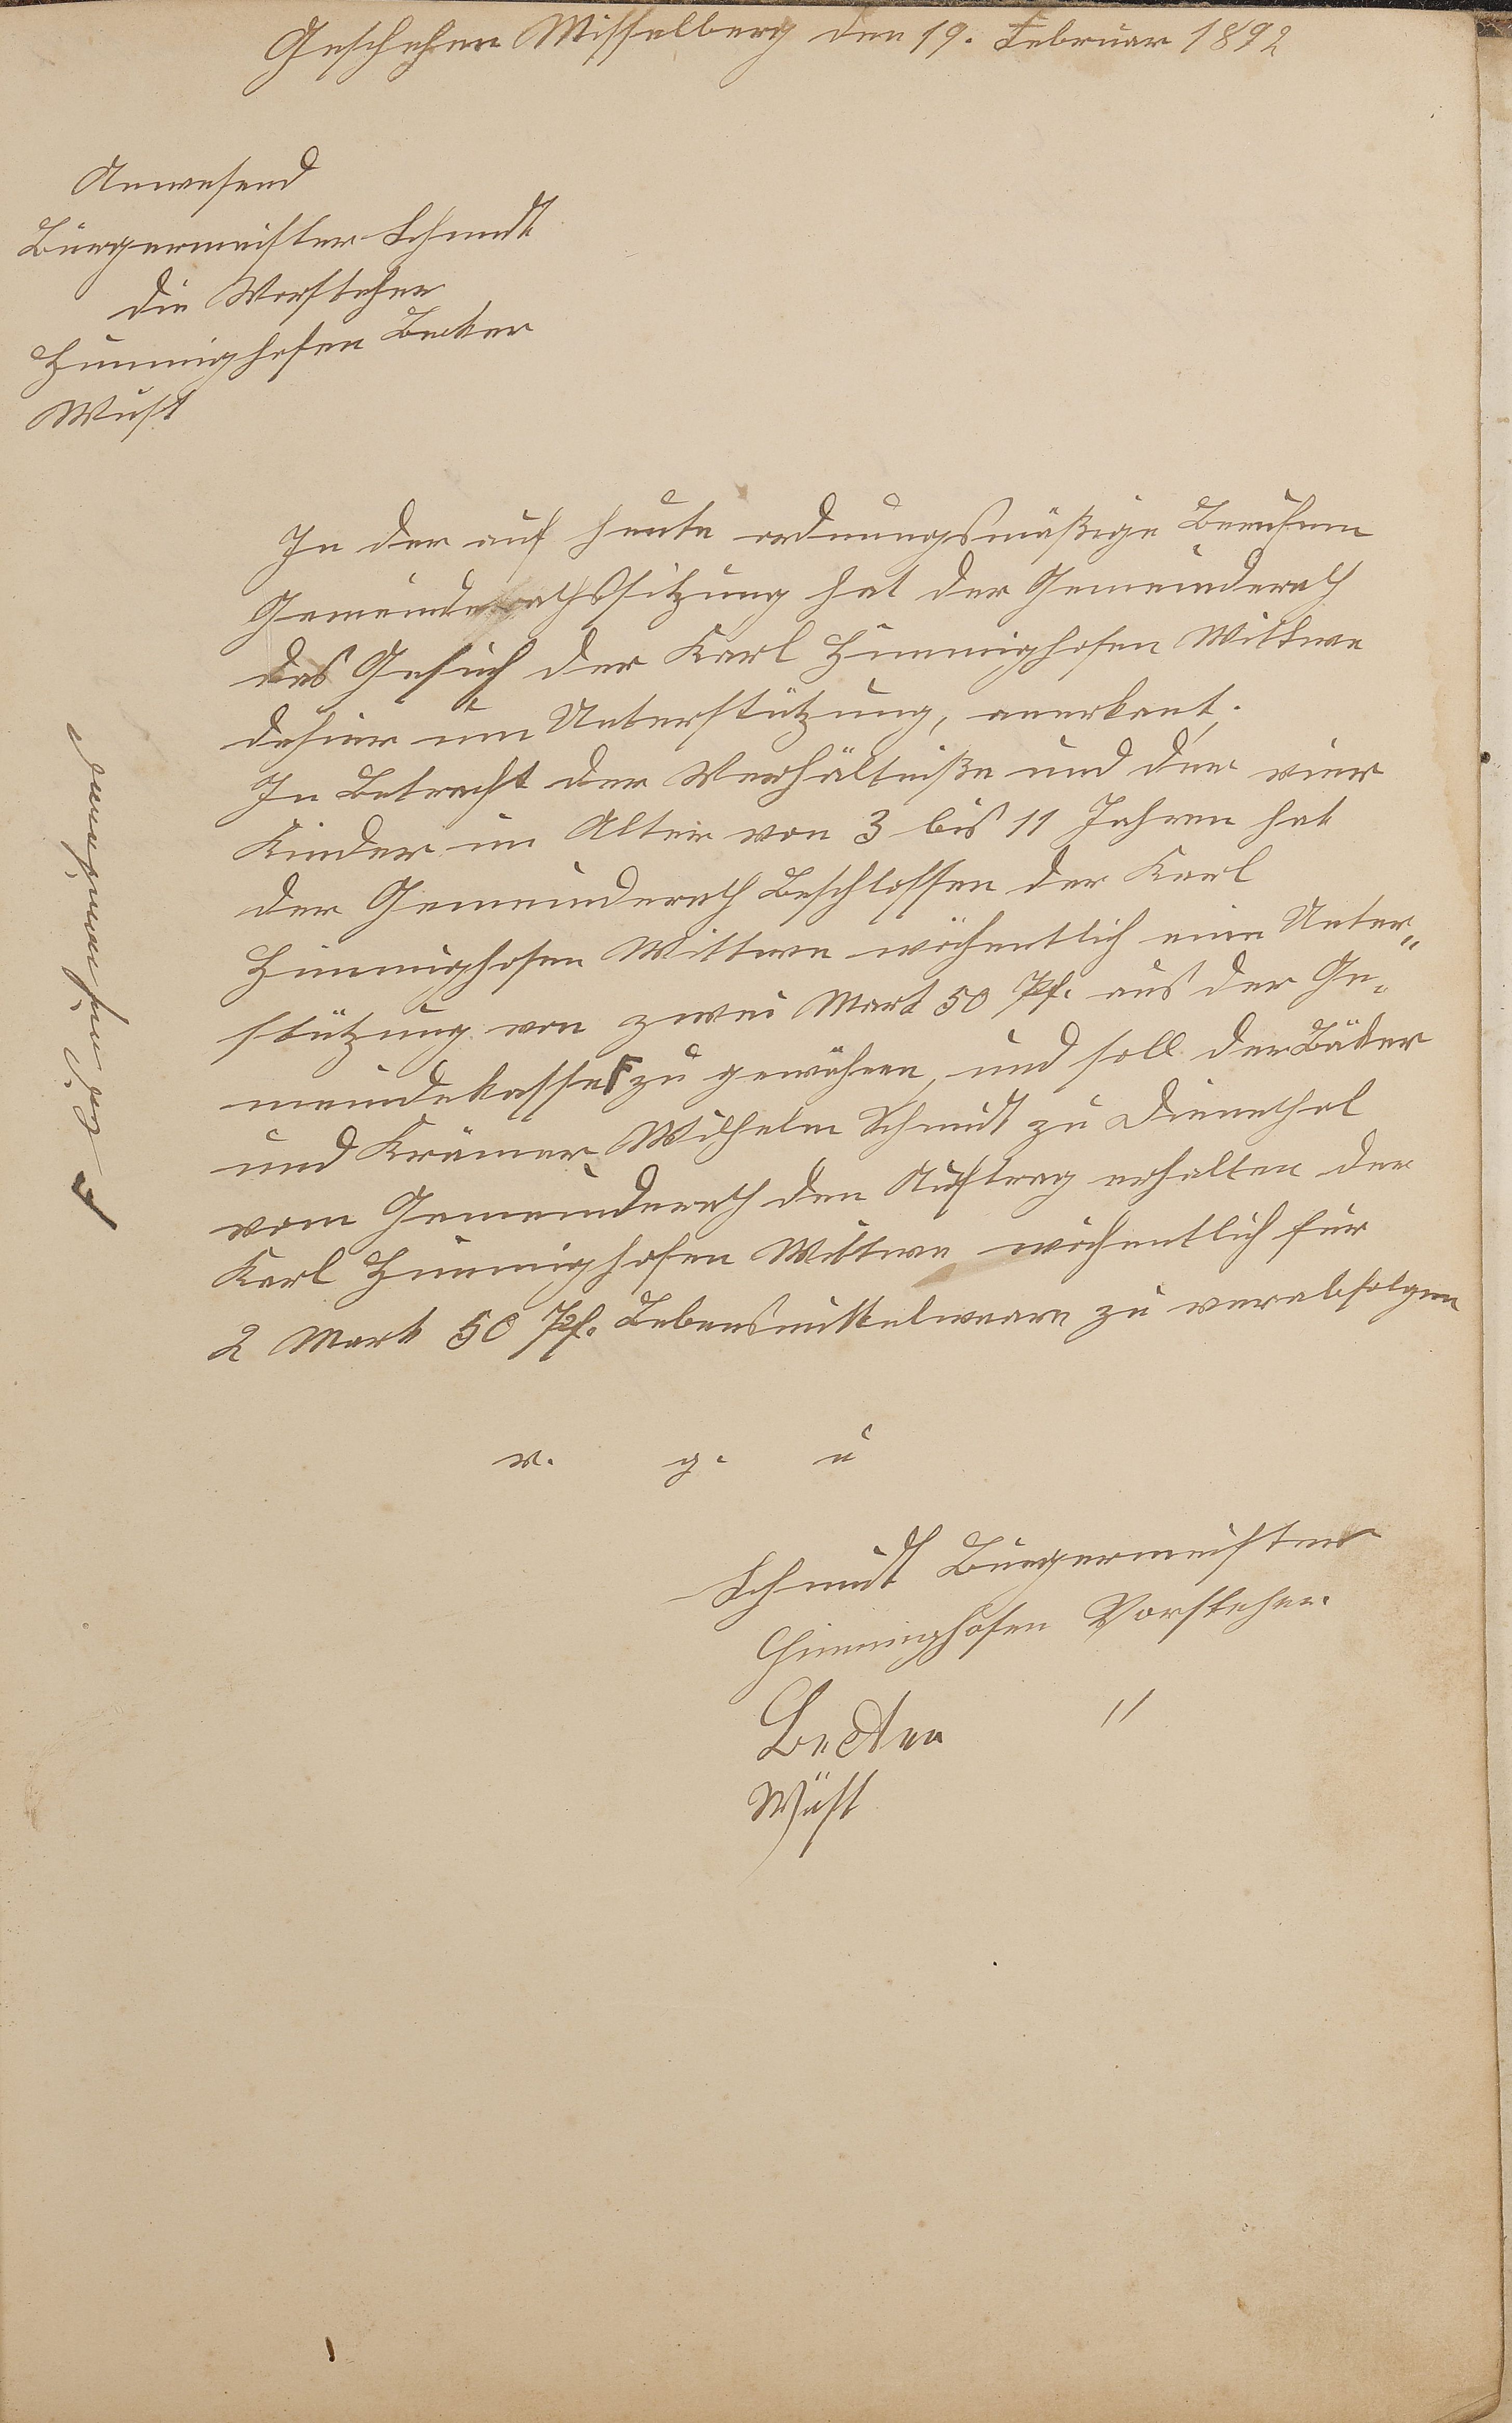 Geschehen Misselberg den 19. Februar 1892
Anwesend
Bürgermeister Schmidt
die Vorsteher
Himmighofen Becker
Wüst
In der auf heute ordnungsmäßige Berufene
Gemeinderathssitzung hat der Gemeinderath
das Gesuch der Karl Himmighofen Wittwe
dahier um Unterstützung, anerkant.
In Betracht der Verhältniße und der vier
Kinder im Alter von 3 bis 11 Jahren hat
der Gemeinderath Beschlossen der Karl
Himmighofen Wittwe wöchentlich eine Unter„
stützung von zwei Mark 50 Pf. aus der Ge„
meindekasse F zu gewähren, und soll der Bäker
und Krämer Wilhelm Schmidt zu Dienethal
vom Gemeinderath den Auftrag erhalten der
Karl Himmighofen Wittwe wöchentlich für
2 Mark 50 Pf. Lebensmittelwaare zu verabfolgen
v. g. u
Schmidt Bürgermeister
Himmighofen Vorsteher
Becker "
Wüst
F